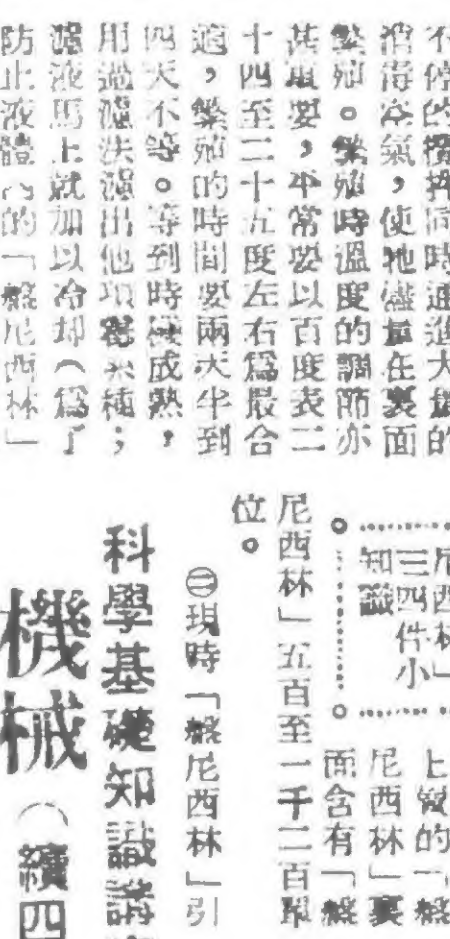 不停的攪拌同時通進大量的
消毒空氣，使牠儘量在裏面
繁殖。繁殖時溫度的調節亦
甚重要，平常要以百度表二
十四至二十五度左右為最合
適，繁殖的時間要兩天半到
四天不等。等到時機成熟，
用過濾法濾出他項
濾液馬上就加以冷却（為了
防止液體內的「盤尼西林」
尼西林」
三四件小
知識
上質的「盤
尼西林」裏
面含有「盤
尼西林」五百至一千二百單
位。
㊁現時「盤尼西林」引
科學基礎知識講
機械（續四